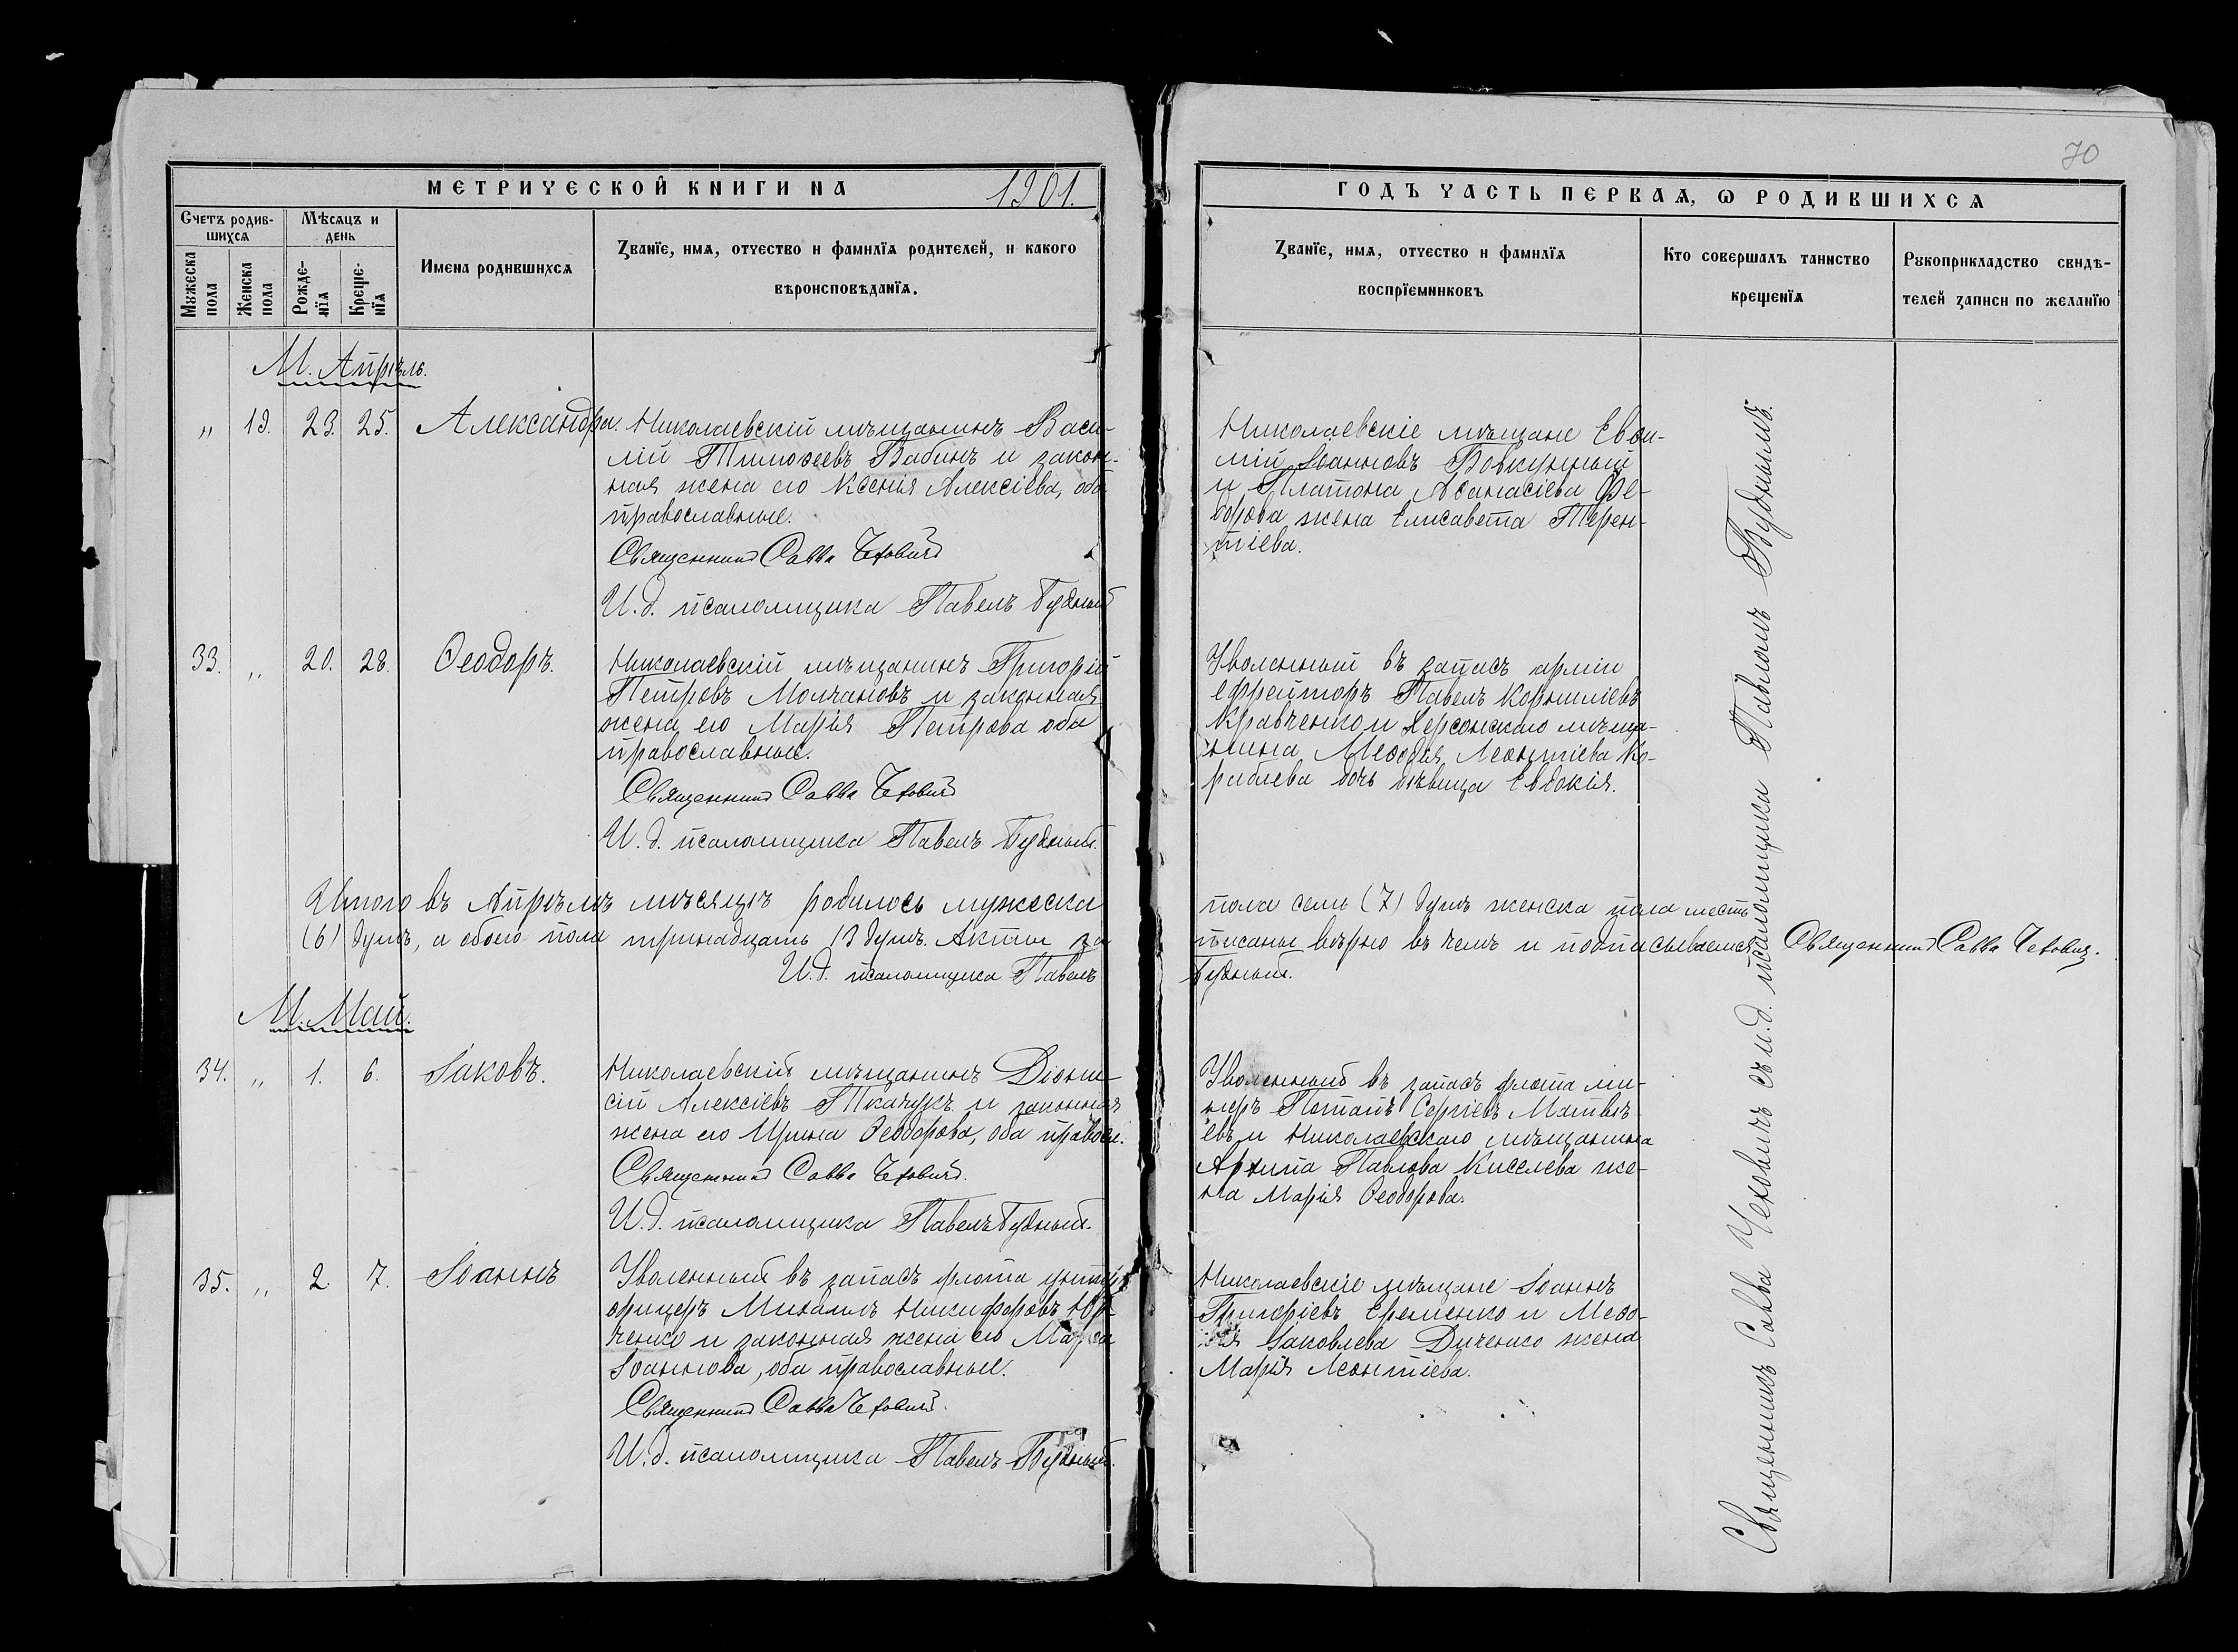 70
МЕТРИЧЕСКОЙ КНИГИ НА 1901.
ГОДЪ ЧАСТЬ ПЕРВАЯ, Ѡ РОДИВШИХСЯ
Счетъ родив-
шихся
Мѣсяцъ и
день
Мужеска
пола
Женска
пола
Рожде-
нїя
Креще-
нїя
Имена родившихся
Званїе, имя, отчество и фамилїя родителей, и какого
вѣроисповѣданїя.
Званїе, имя, отчество и фамилїя
воспрїемниковъ
Кто совершалъ таинство
крещенїя
Рукоприкладство свидѣ-
телей записи по желанїю
М. Апрѣль.
„ 19. 23. 25. Александра.
Николаевскій мѣщанинъ Васи-
лій Тимоѳеевъ Бабинъ и закон-
ная жена его Ксенія Алексіева, оба
православные.
Священникъ Савва Чехович
И. д. псаломщика Павелъ Будный
Николаевскіе мѣщане Евѳи-
мій Іоанновъ Бовкунный
и Платона Аѳанасіева Ѳе-
дорова жена Елисавета Терен-
тіева.
33. „ 20. 28. Ѳеодоръ.
Николаевскій мѣщанинъ Григорій
Петровъ Молчановъ и законная
жена его Марія Петрова оба
православные.
Священникъ Савва Чехович
И. д. псаломщика Павелъ Будный.
Уволенный въ запасъ арміи
ефрейторъ Павелъ Корниліевъ
Кравченко и Херсонскаго мѣща-
нина Меѳодія Леонтіева Ко-
раблева дочь дѣвица Евдокія.
Итого въ Апрѣлѣ мѣсяцѣ родилось мужеска пола семь (7) душъ женска пола шесть
(6) душъ, а обоего пола тринадцать 13 душъ. Акты за писаны вѣрно въ чемъ и подписываемся Священникъ Савва Чехович.
И. д. псаломщика Павелъ Будный.
М. Май.
34. „ 1. 6. Іаковъ.
Николаевскій мѣщанинъ Діони-
сій Алексіевъ Ткачукъ и законная
жена его Ирина Ѳеодорова, оба правосл.
Священникъ Савва Чехович.
И. д. псаломщика Павелъ Будный.
Уволенный въ запасъ флота ми-
неръ Потапъ Сергіевъ Матвѣ-
евъ и Николаевскаго мѣщанина
Архипа Павлова Киселева же-
на Марія Ѳеодорова.
35. „ 2. 7. Іоаннъ
Уволенный въ запасъ флота унтеръ
офицеръ Михаилъ Никифоровъ Юр
ченко и законная жена его
Іоаннова, оба православные.
Священникъ Савва Чехович.
И. д. псаломщика Павелъ Будный.
Николаевскіе мѣщане Іоаннъ
Григоріевъ Еременко и Меѳо-
дія Іаковлева Диченко жена
Марія Леонтіева.
Священникъ Савва Чеховичъ съ и. д. псаломщика Павломъ Буднымъ.